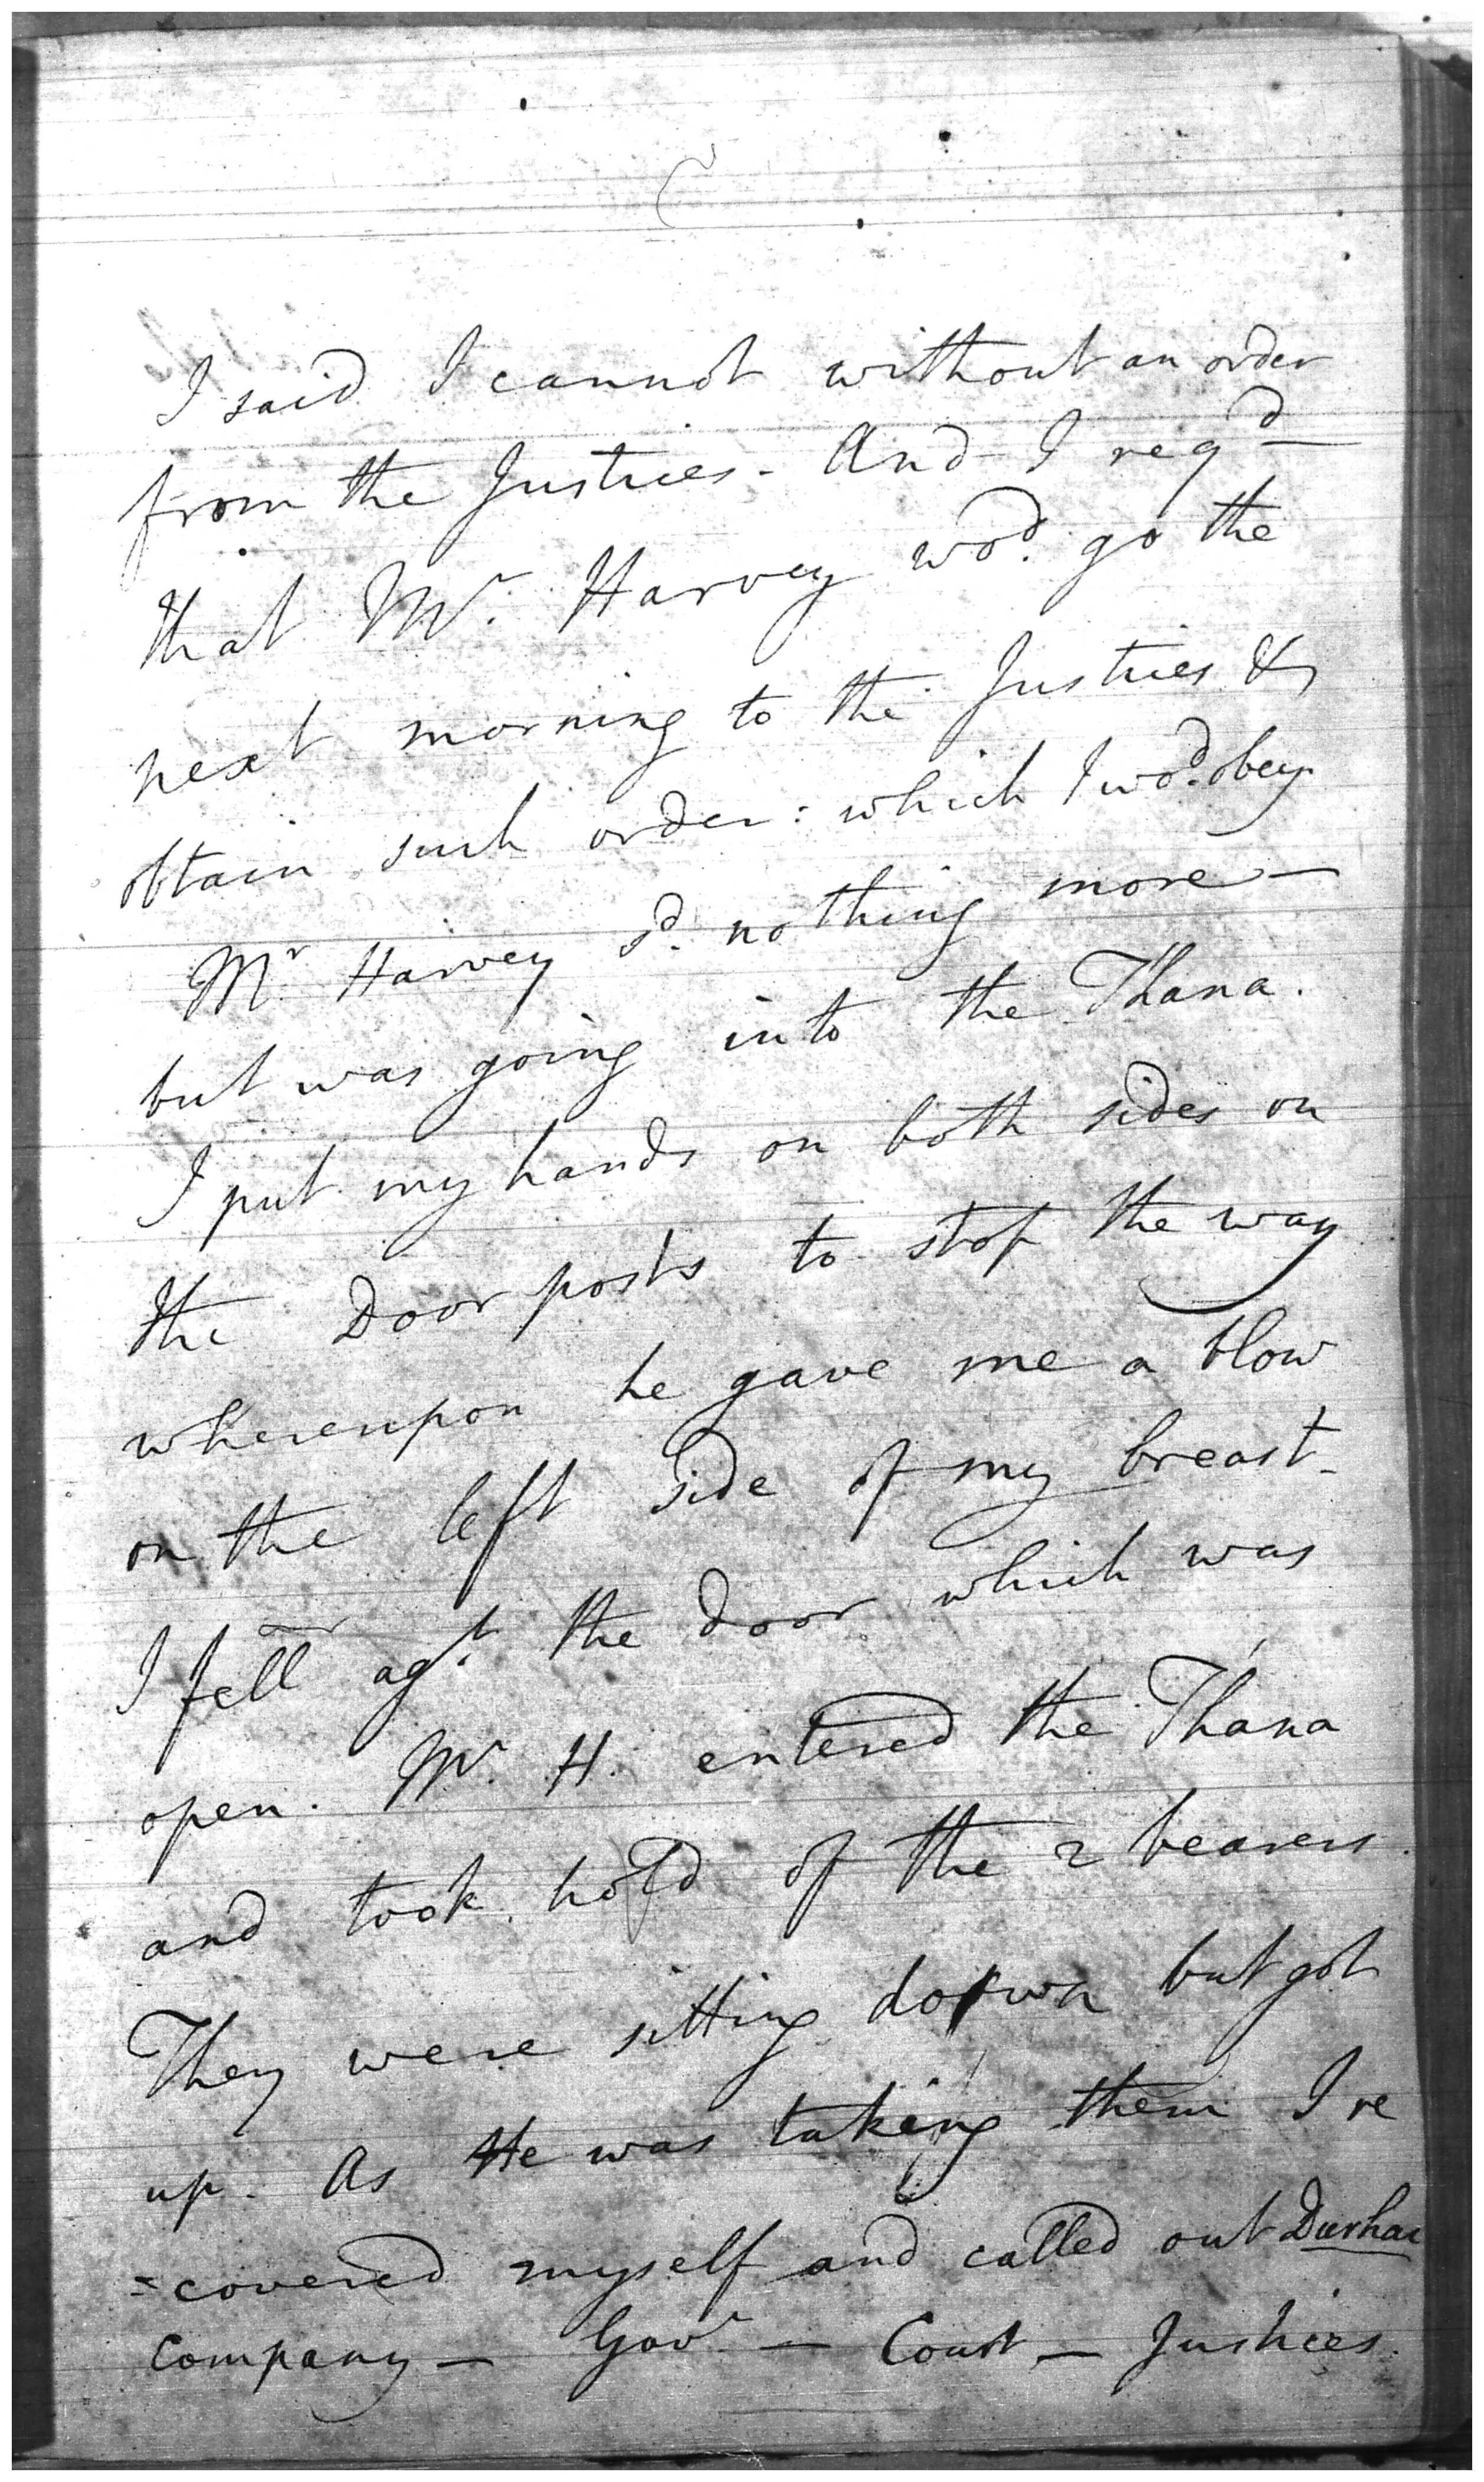 I said I cannot without an order
from the Justices - And I reqd
that Mr. Harvey wod. go the
next morning to the Justices &
obtain such order: which I wod. obey.
Mr Harvey sd. nothing more —
but was going into the Thana.
I put my hands on both sides on
the Door posts to stop the way
whereupon he gave me a blow
on the left side of my breast -
I fell agt. the door which was
open. Mr. H. entered the Thana
and took hold of the 2 bearers.
They were sitting down but got
up. As He was taking them I re
=covered myself and called out Durhai
Company — Govr — Court — Justices.